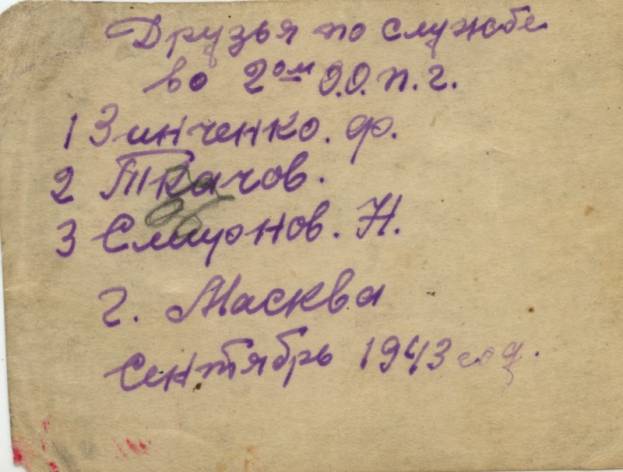 Друзья по службе
во 2ом О.О.п.г.
1 Зинченко. ф.
2 Ткачов.
3 Смирнов. Н.
г. Масква
Сентябрь 1943 год.